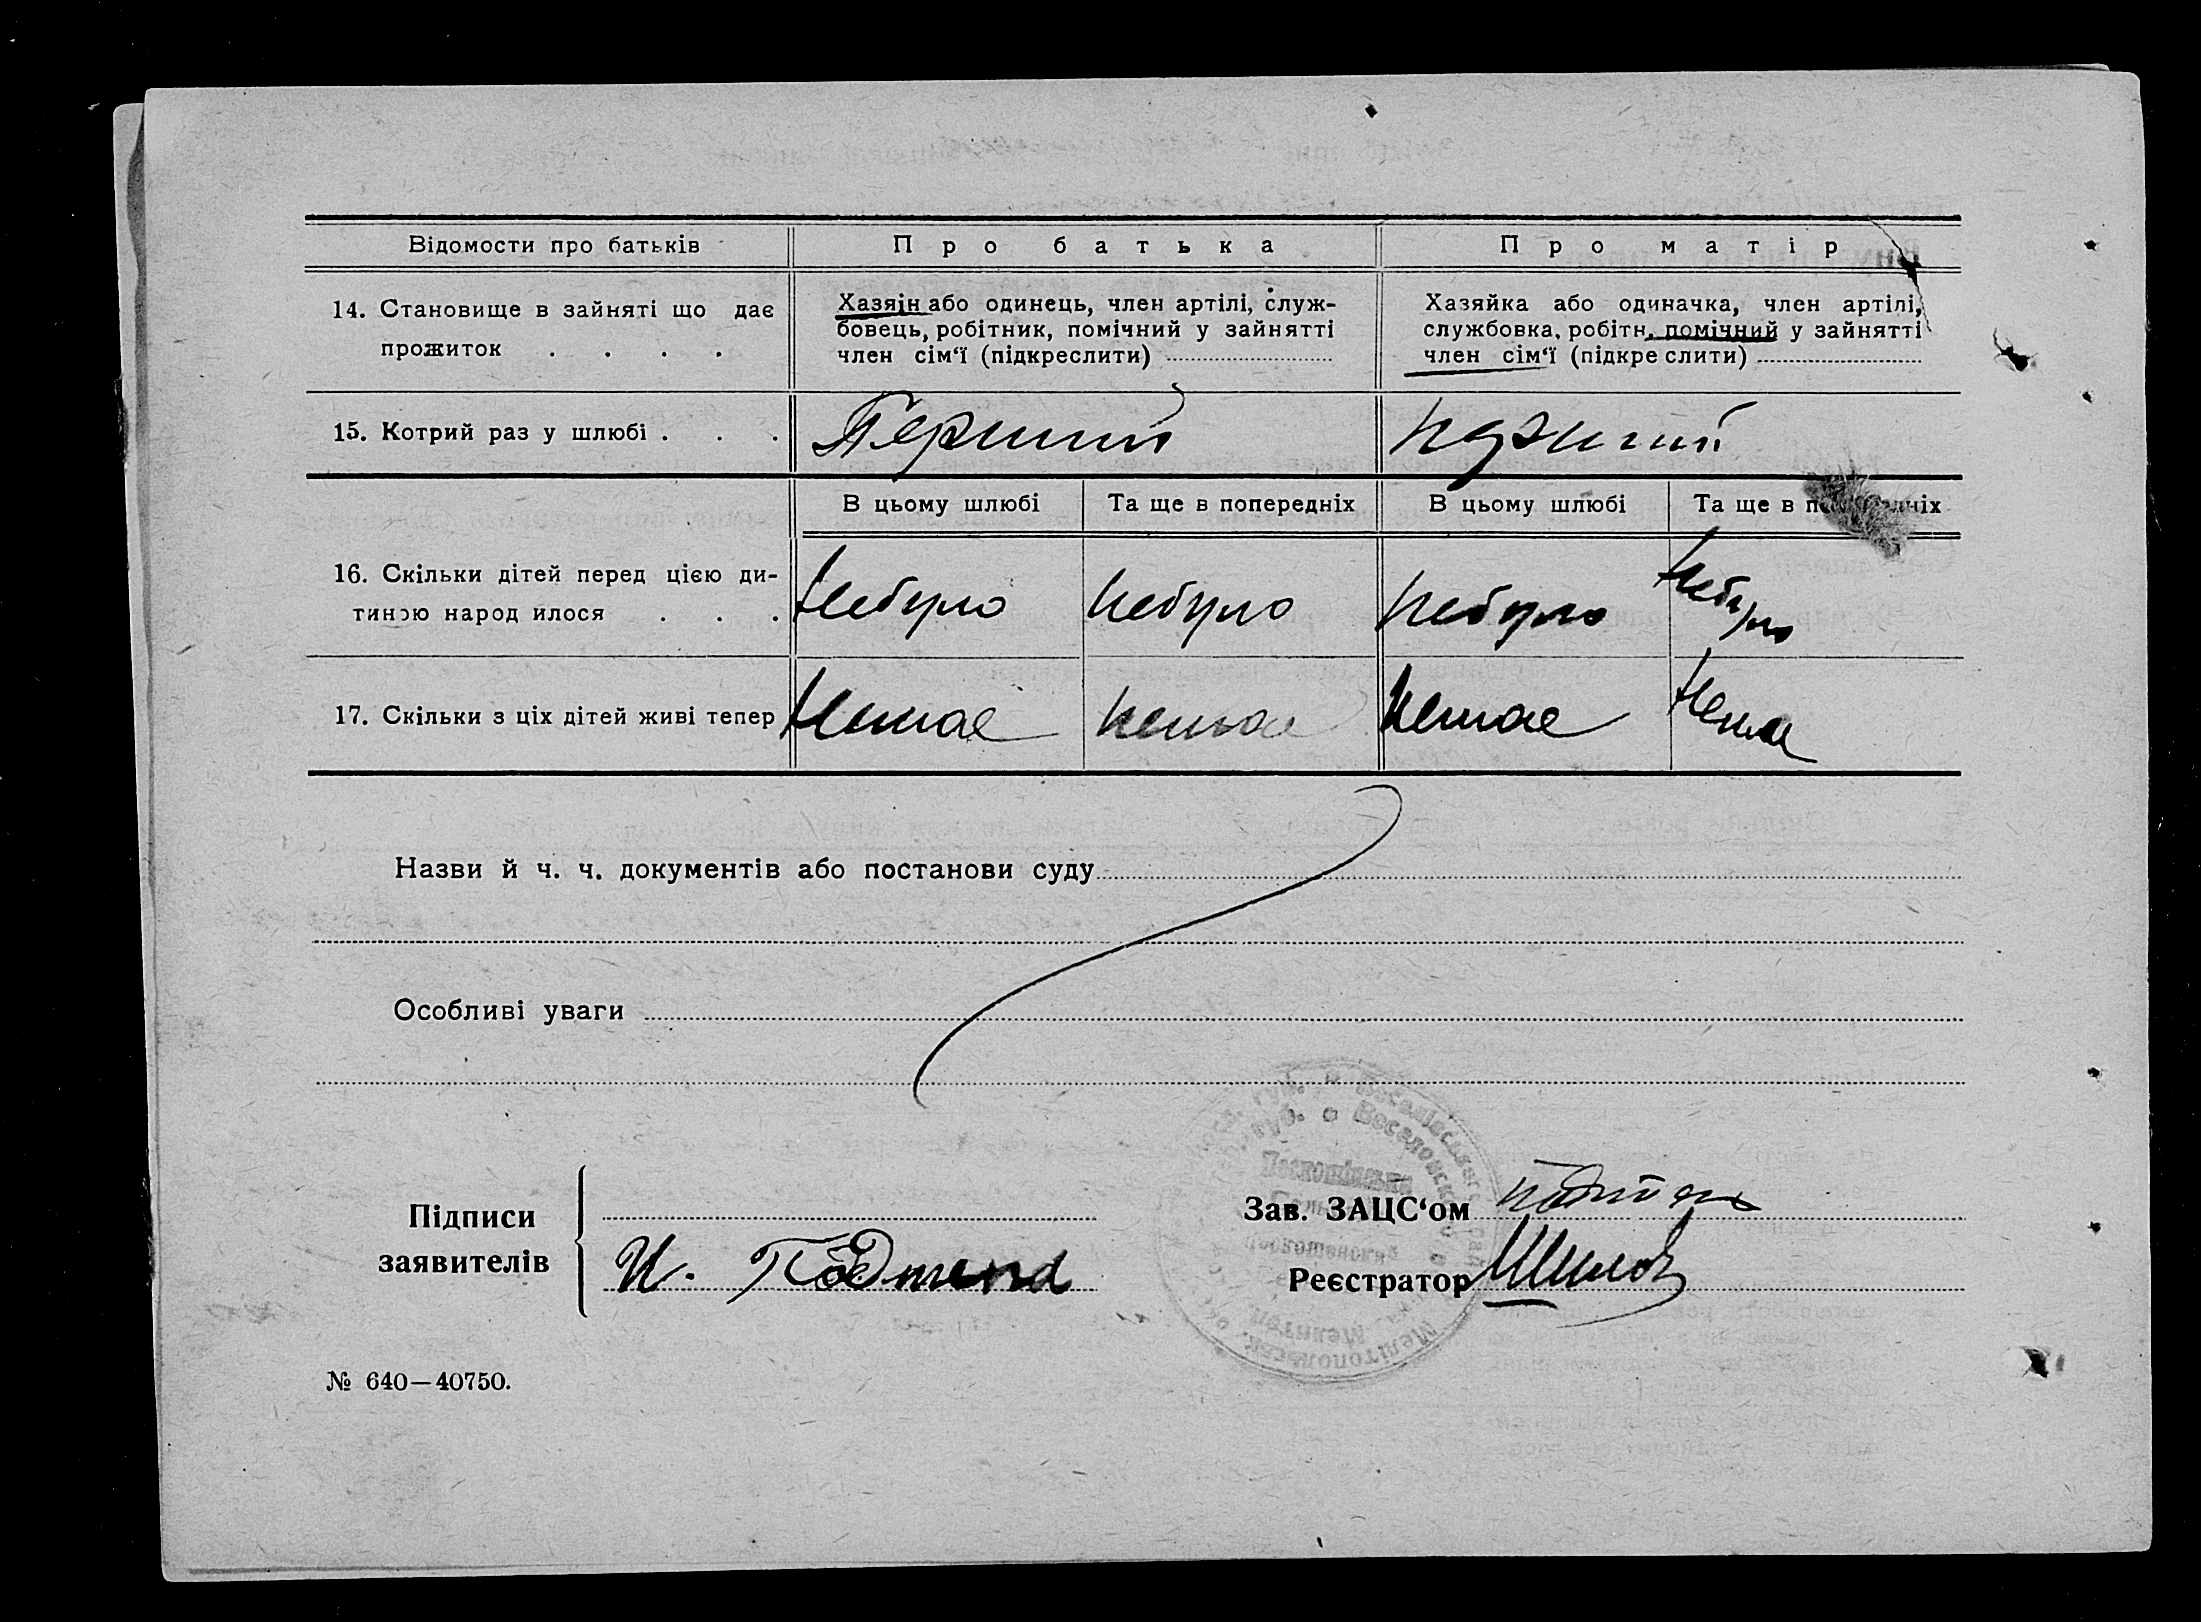 Відомости про батьків Про батька Про матір
14. Становище в зайняті що дає прожиток . . . .
Хазяїн або одинець, член артілі, служ-
бовець, робітник, помічний у зайнятті
член сім'ї (підкреслити)
Хазяйка або одиначка, член артілі,
службовка, робітн. помічний у зайнятті
член сім'ї (підкре слити)
15. Котрий раз у шлюбі . . . Перший перший
В цьому шлюбі Та ще в попередніх В цьому шлюбі Та ще в попередніх
16. Скільки дітей перед цією ди-
тиною народ илося . . . Небуло Небуло Небуло Небуло
17. Скільки з ціх дітей живі тепер Немае Немае Немае Немае
Назви й ч. ч. документів або постанови суду
Особливі уваги
Підписи
заявителів
И.
Зав. ЗАЦС'ом
Реєстратор
№ 640—40750.